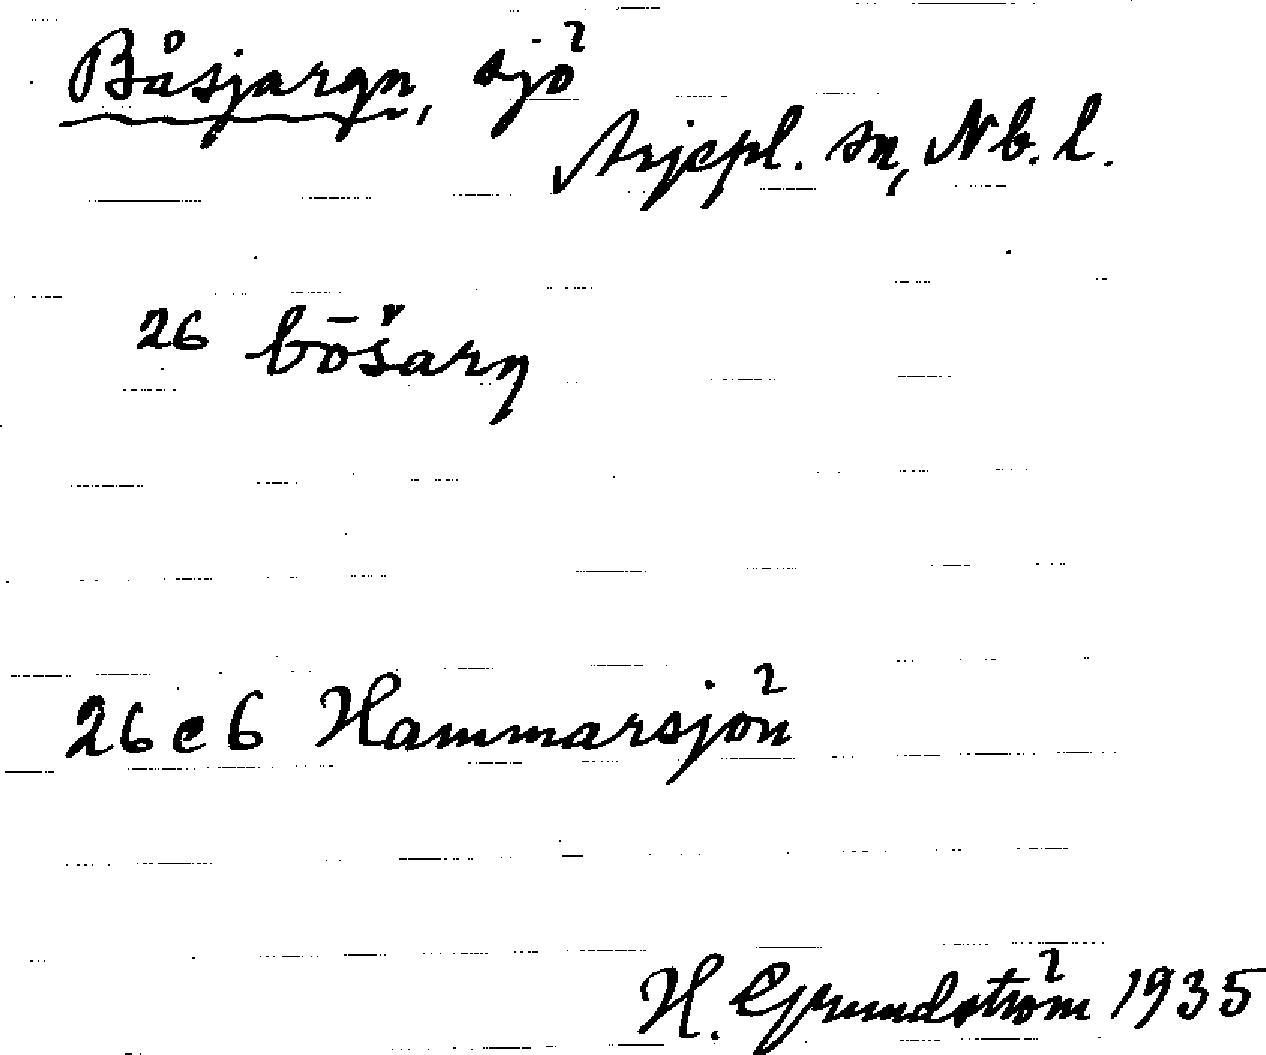 Båsjargn, sjö
Arjepl. sn, Nb. l.
26 bōšarŋ
26 e 6 Hammarsjön
H. Grundström 1935